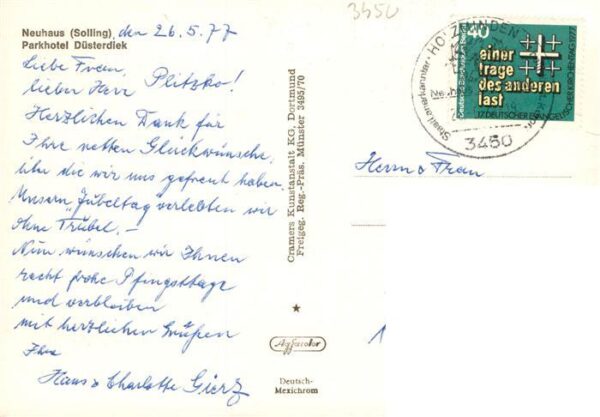 Neuhaus (Solling), den 26.5.77
Parkhotel Düsterdiek
Liebe Frau,
lieber Herr Plitzko!
Herzlichen Dank für
Ihre netten Glückwünsche,
über die wir uns gefreut haben.
Unsern "Jubeltag" verlebten wir
ohne Trubel. –
Nun wünschen wir Ihnen
recht frohe Pfingsttage
und verbleiben
mit herzlichen Grüßen
Ihre
Hans & Charlotte Gierz
Cramers Kunstanstalt KG, Dortmund
Freigeg. Reg.-Präs. Münster 3495/70
Agfacolor
Deutsch-
Mexichrom
3450
HOLZMINDEN
Staatl. anerkannter
3450
40
einer
trage
des anderen
last
17. DEUTSCHER EVANGELISCHER KIRCHENTAG 1977
Herrn & Frau